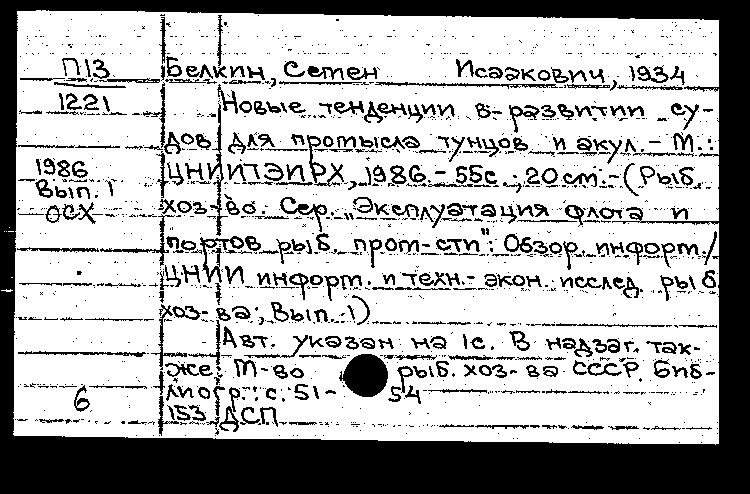 П13
1221
1986
Вып. 1
ОСХ
6
Белкин, Семен Исаакович, 1934
Новые тенденции в развитии су-
дов для промысла тунцов и акул. – М.:
ЦНИИТЭИРХ, 1986. – 55с.; 20см. – (Рыб.
хоз-во. Сер. „Эксплуатация флота и
портов рыб. пром-сти": Обзор. информ. /
ЦНИИ информ. и техн.-экон. исслед. рыб.
хоз-ва; Вып. 1)
Авт. указан на 1с. В надзаг. так-
же: М-во рыб. хоз-ва СССР. Биб-
лиогр.: с. 51-54
153 ДСП